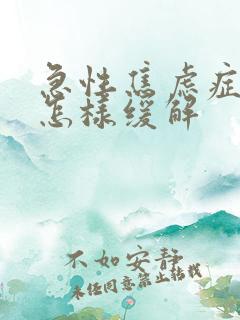 急性焦虑症
怎样缓解
不如安静
未经同意禁止转载